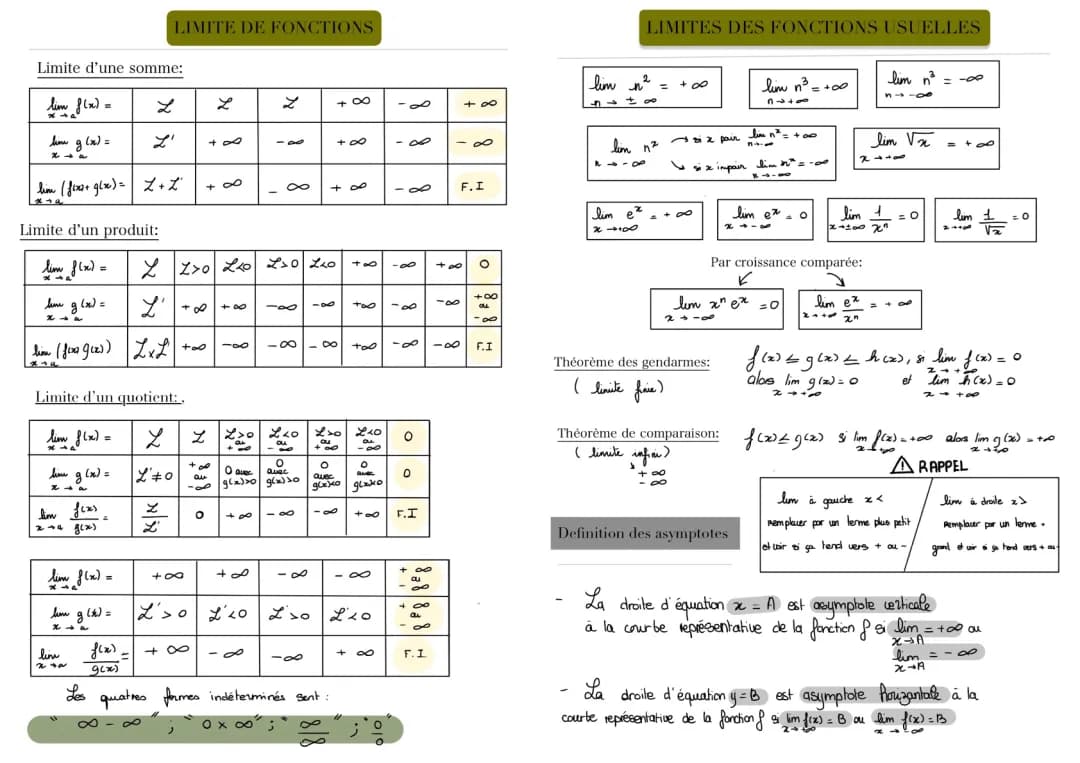 LIMITE DE FONCTIONS
Limite d'une somme:
lim f(x) = x→a | L | L | L | +∞ | -∞ | +∞
lim g(x) = x→a | L' | +∞ | -∞ | +∞ | -∞ | -∞
lim (f(x)+g(x)) = x→a | L+L' | +∞ | -∞ | +∞ | -∞ | F.I
Limite d'un produit:
lim f(x) = x→a | L | L>0 | L<0 | L>0 | L<0 | +∞ | -∞ | +∞ | 0
lim g(x) = x→a | L' | +∞ | +∞ | -∞ | -∞ | +∞ | -∞ | -∞ | +∞ ou -∞
lim (f(x) g(x)) x→a | L×L' | +∞ | -∞ | -∞ | -∞ | +∞ | -∞ | -∞ | F.I
Limite d'un quotient: .
lim f(x) = x→a | L | L | L>0 ou +∞ | L<0 ou -∞ | L>0 ou +∞ | L<0 ou -∞ | 0
lim g(x) = x→a | L'≠0 | +∞ ou -∞ | 0 avec g(x)>0 | 0 avec g(x)>0 | 0 avec g(x)<0 | 0 avec g(x)<0 | 0
lim x→a f(x)/g(x) = | L/L' | 0 | +∞ | -∞ | -∞ | +∞ | F.I
lim f(x) = x→a | +∞ | +∞ | -∞ | -∞ | +∞ ou -∞
lim g(x) = x→a | L'>0 | L'<0 | L'>0 | L'<0 | +∞ ou -∞
lim x→a f(x)/g(x) = | +∞ | -∞ | -∞ | +∞ | F.I
Les quatres formes indéterminés sent :
"∞ - ∞" ; "0 × ∞" ; "∞/∞" ; "0/0"
LIMITES DES FONCTIONS USUELLES
lim n² = +∞ n→±∞
lim n³ = +∞ n→+∞
lim n³ = -∞ n→-∞
lim nˣ n→-∞ → si x pair lim nˣ = +∞ n→-∞
↘ si x impair lim nˣ = -∞ x→-∞
lim √x = +∞ x→+∞
lim eˣ = +∞ x→+∞
lim eˣ = 0 x→-∞
lim 1/xⁿ = 0 x→±∞
lim 1/√x = 0 x→+∞
Par croissance comparée:
lim xⁿ eˣ = 0 x→-∞
lim eˣ/xⁿ = +∞ x→+∞
Théorème des gendarmes:
( limite finie)
f(x) ≤ g(x) ≤ h(x), si lim f(x) = 0 x→+∞
alos lim g(x) = 0 x→+∞ et lim h(x) = 0 x→+∞
Théorème de comparaison:
( limite infini)
+∞
-∞
f(x) ≤ g(x) si lim f(x) = +∞ alos lim g(x) = +∞
⚠ RAPPEL
lim à gauche x <
remplacer par un terme plus petit
et voir si ça tend vers + ou -
lim à droite x >
Remplacer par un terme +
grand et voir si ça tend vers + ou -
Definition des asymptotes
- La droite d'équation x = A est asymptote verticale
à la courbe représentative de la fonction f si lim = +∞ ou x→A
lim = -∞ x→A
- La droite d'équation y = B est asymptote horizontale à la
courbe représentative de la fonction f si lim f(x) = B x→+∞ ou lim f(x) = B x→-∞